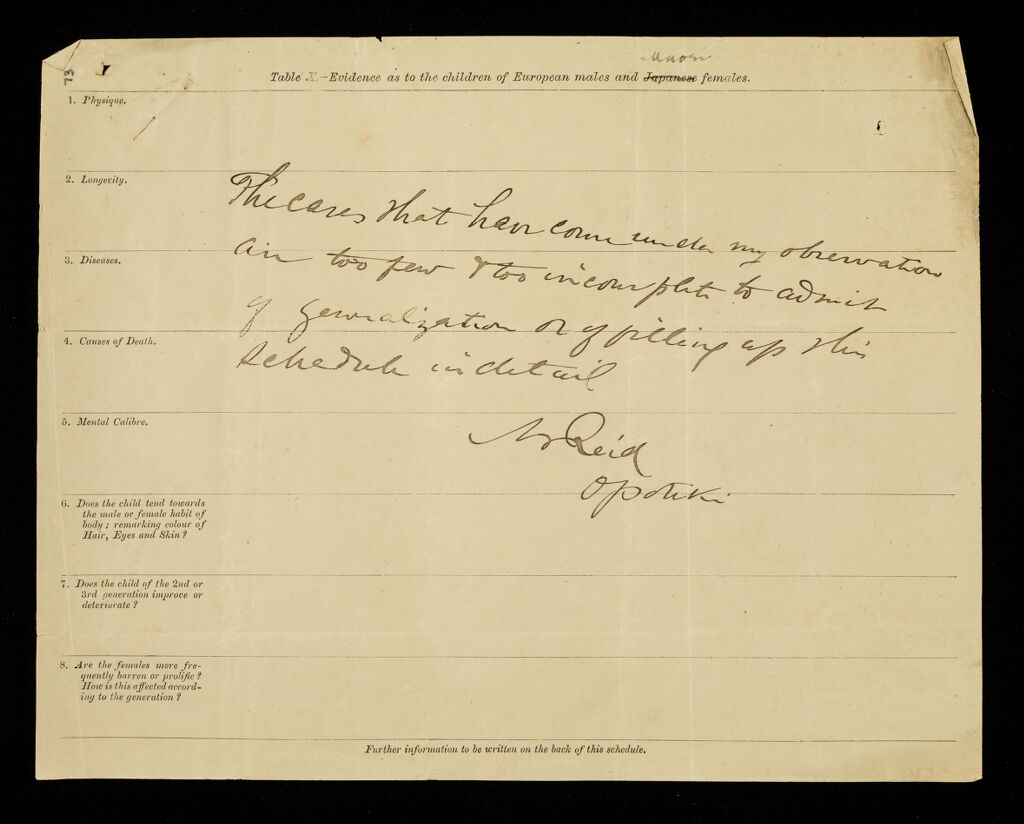 73
Maori
Table X.—Evidence as to the children of European males and Japanese females.
1. Physique.
2. Longevity.
The cases that have come under my observation
3. Diseases.
are too few & too incomplete to admit
of generalization or of filling up this
4. Causes of Death.
schedule in detail
5. Mental Calibre.
Reid
Opotiki
6. Does the child tend towards
the male or female habit of
body; remarking colour of
Hair, Eyes and Skin?
7. Does the child of the 2nd or
3rd generation improve or
deteriorate?
8. Are the females more fre-
quently barren or prolific?
How is this affected accord-
ing to the generation?
Further information to be written on the back of this schedule.